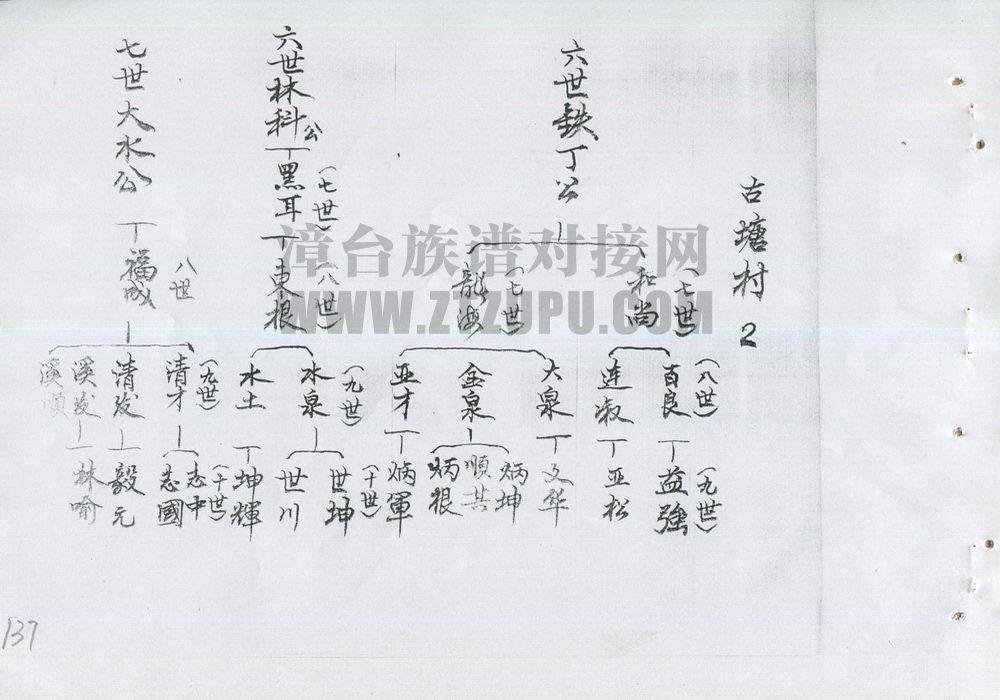 古塘村 2
六世鉄丁公
和尚 (七世)
龍海 (七世)
百良 (八世)
連淑
大泉
金泉
亚才
益強 (九世)
亚松
文华
炳坤
順共
炳根
炳軍
六世林科公
黑耳 (七世)
東根 (八世)
水泉 (九世)
水土
世坤 (十世)
世川
坤輝
七世大水公
福成 八世
清才 (九世)
清发
溪发
溪順
志中 (十世)
志國
毅元
林喻
137
漳台族谱对接网
WWW.ZTZUPU.COM